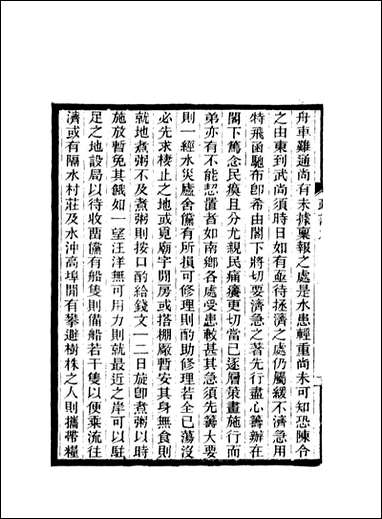 舟車雖通尚有未據稟報之處是水患輕重尚未可知恐陳令
之由東到武尚須時日如有亟待拯濟之處仍屬緩不濟急用
特飛函馳布卽希由閣下將切要濟急之著先行盡心籌辦在
閣下篤念民瘼且分尤親民痛癢更切當已逐層策畫施行而
弟亦有不能恝置者如南鄉各處受患較甚其急須先籌大要
則一經水災廬舍儻有所損可修理則酌助修理若全已蕩沒
必先求棲止之地或覓廟宇閒房或搭棚厰暫安其身無食則
就地煮粥不及煮粥則按口酌給錢文一二日旋卽煮粥以時
施放暫免其餓如一望汪洋無可用力則就最近之岸可以駐
足之地設局以待收茵儻有船隻則備船若干隻以便乘流往
濟或有隔水村莊及水沖高埠閒有攀避樹株之人則攜帶糧